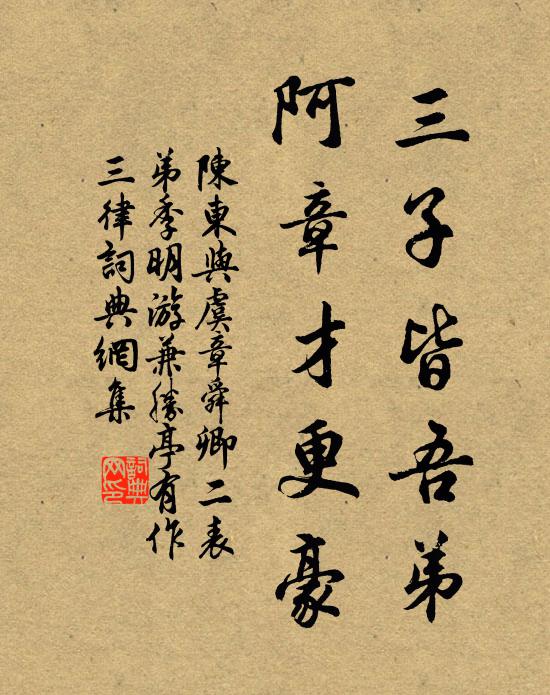 三子皆吾弟
阿章才更豪
陳東與虞章舜卿二表
弟季明游兼勝亭有作
三律詞典網集
詞典网印